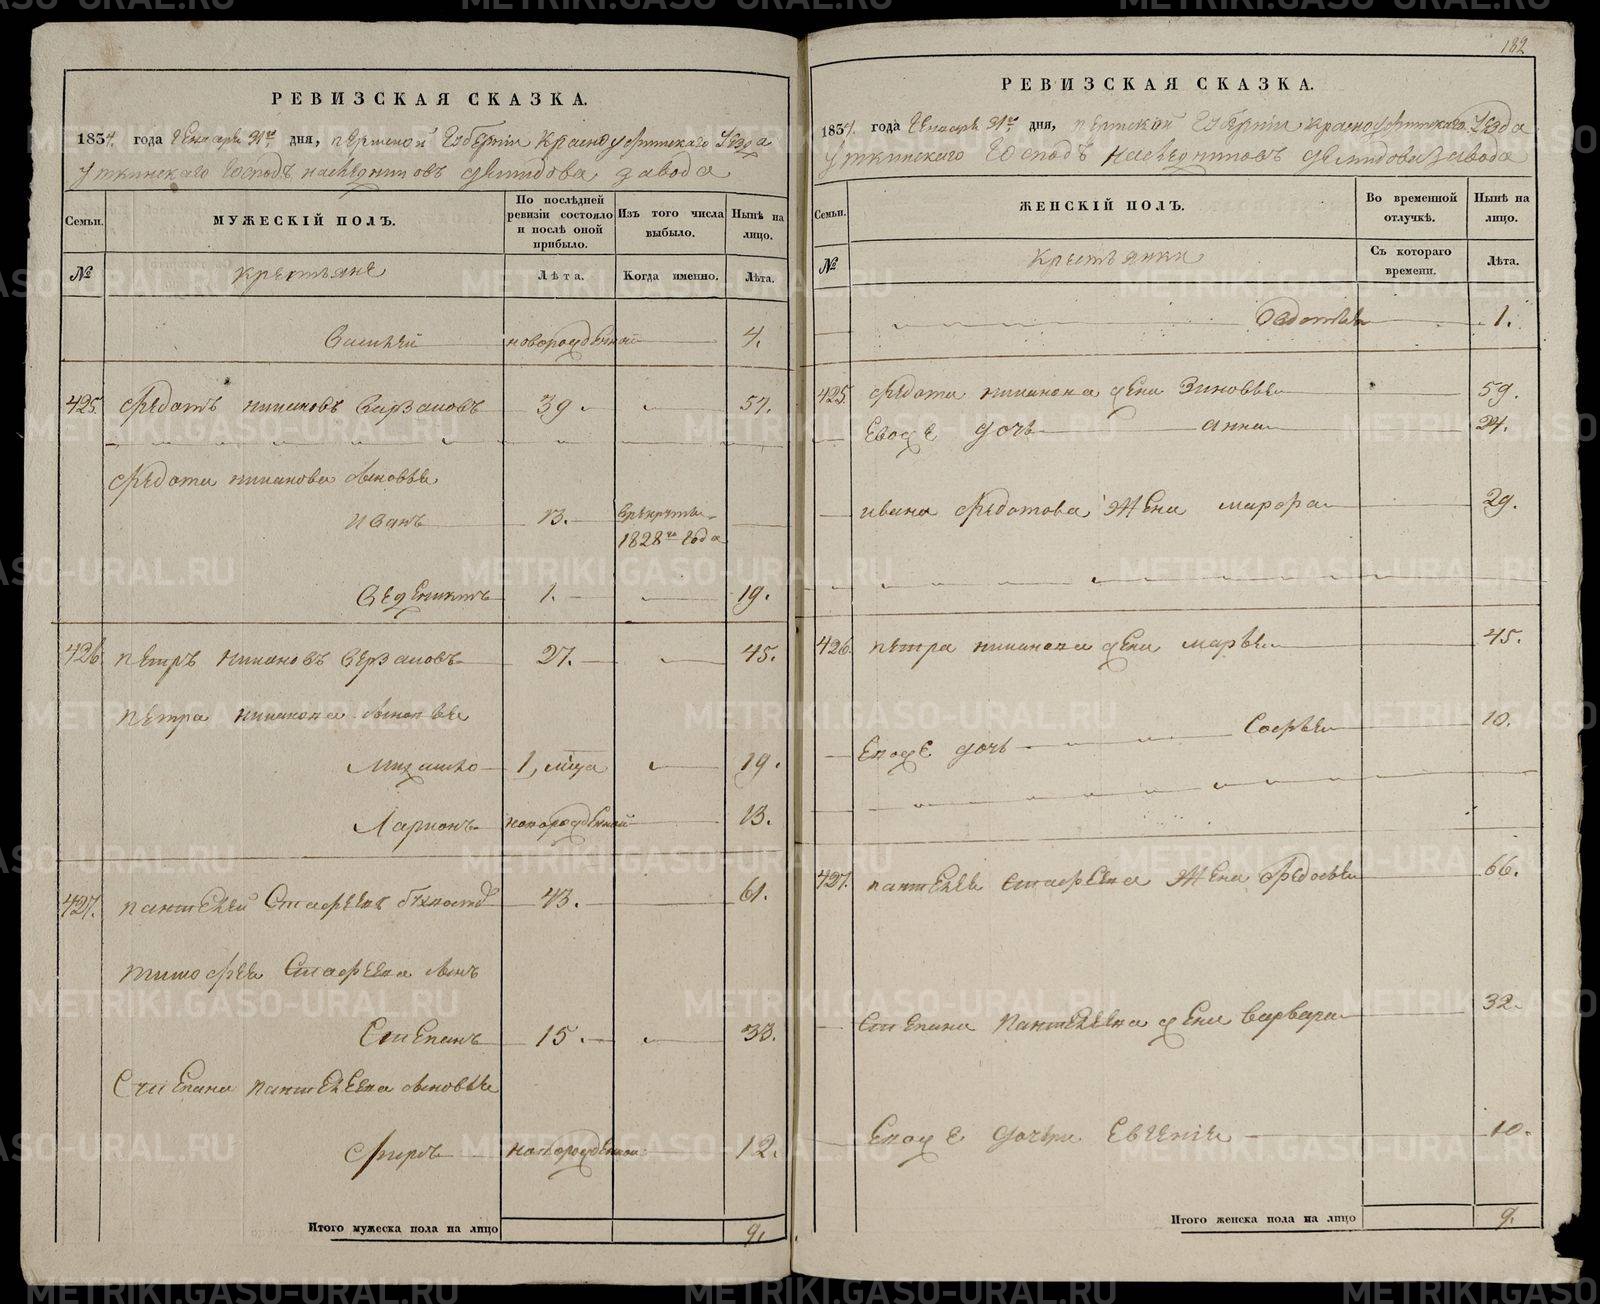 182
РЕВИЗСКАЯ СКАЗКА.
1834. года Генваря 31го дня, пермской Губерніи Красноуфимскаго Уезда
Уткинскаго Господъ наследниковъ демидова завода
Семьи.
МУЖЕСКІЙ ПОЛЪ.
По послѣдней ревизіи состояло и послѣ оной прибыло.
Изъ того числа выбыло.
Нынѣ на лицо.
№
крестьяне
Лѣта.
Когда именно.
Лѣта.
Василей новорожденной 4.
425. Федотъ никоновъ 39. 57.
Федота никонова сыновья
иванъ 13. 1828го года
Веденихтъ 1. 19.
426. петръ никоновъ 27. 45.
петра никонова сыновья
Михаило 1, м͞ца 19.
Ларионъ новорожденной 13.
427. пантелей Стафеевъ 43. 61.
тимофея Стафеева сынъ
Степанъ 15. 33.
Степана пантелеева сыновья
Фирсъ новорожденной 12.
Итого мужеска пола на лицо 9.
РЕВИЗСКАЯ СКАЗКА.
1834. года Генваря 31го дня, пермской Губерніи красноуфимскаго Уезда
Уткинскаго Господъ наследниковъ демидова завода
Семьи.
ЖЕНСКІЙ ПОЛЪ.
Во временной отлучкѣ.
Нынѣ на лицо.
№
крестьянки
Съ котораго времени.
Лѣта.
Федотья 1.
425. Федота никонова жена Зиновья 59.
Евоже дочь анна 24.
ивана Федотова жена марфа 29.
426. петра никонова жена марья 45.
Евоже дочь Софья 10.
427. пантелея Стафеева жена Федосья 66.
Степана Пантелеева жена варвара 32.
Евоже дочери Евгенія 10.
Итого женска пола на лицо 9.
METRIKI.GASO-URAL.RU